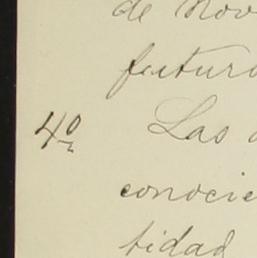 de Nov
futuro
4º Las
conocie
tidad